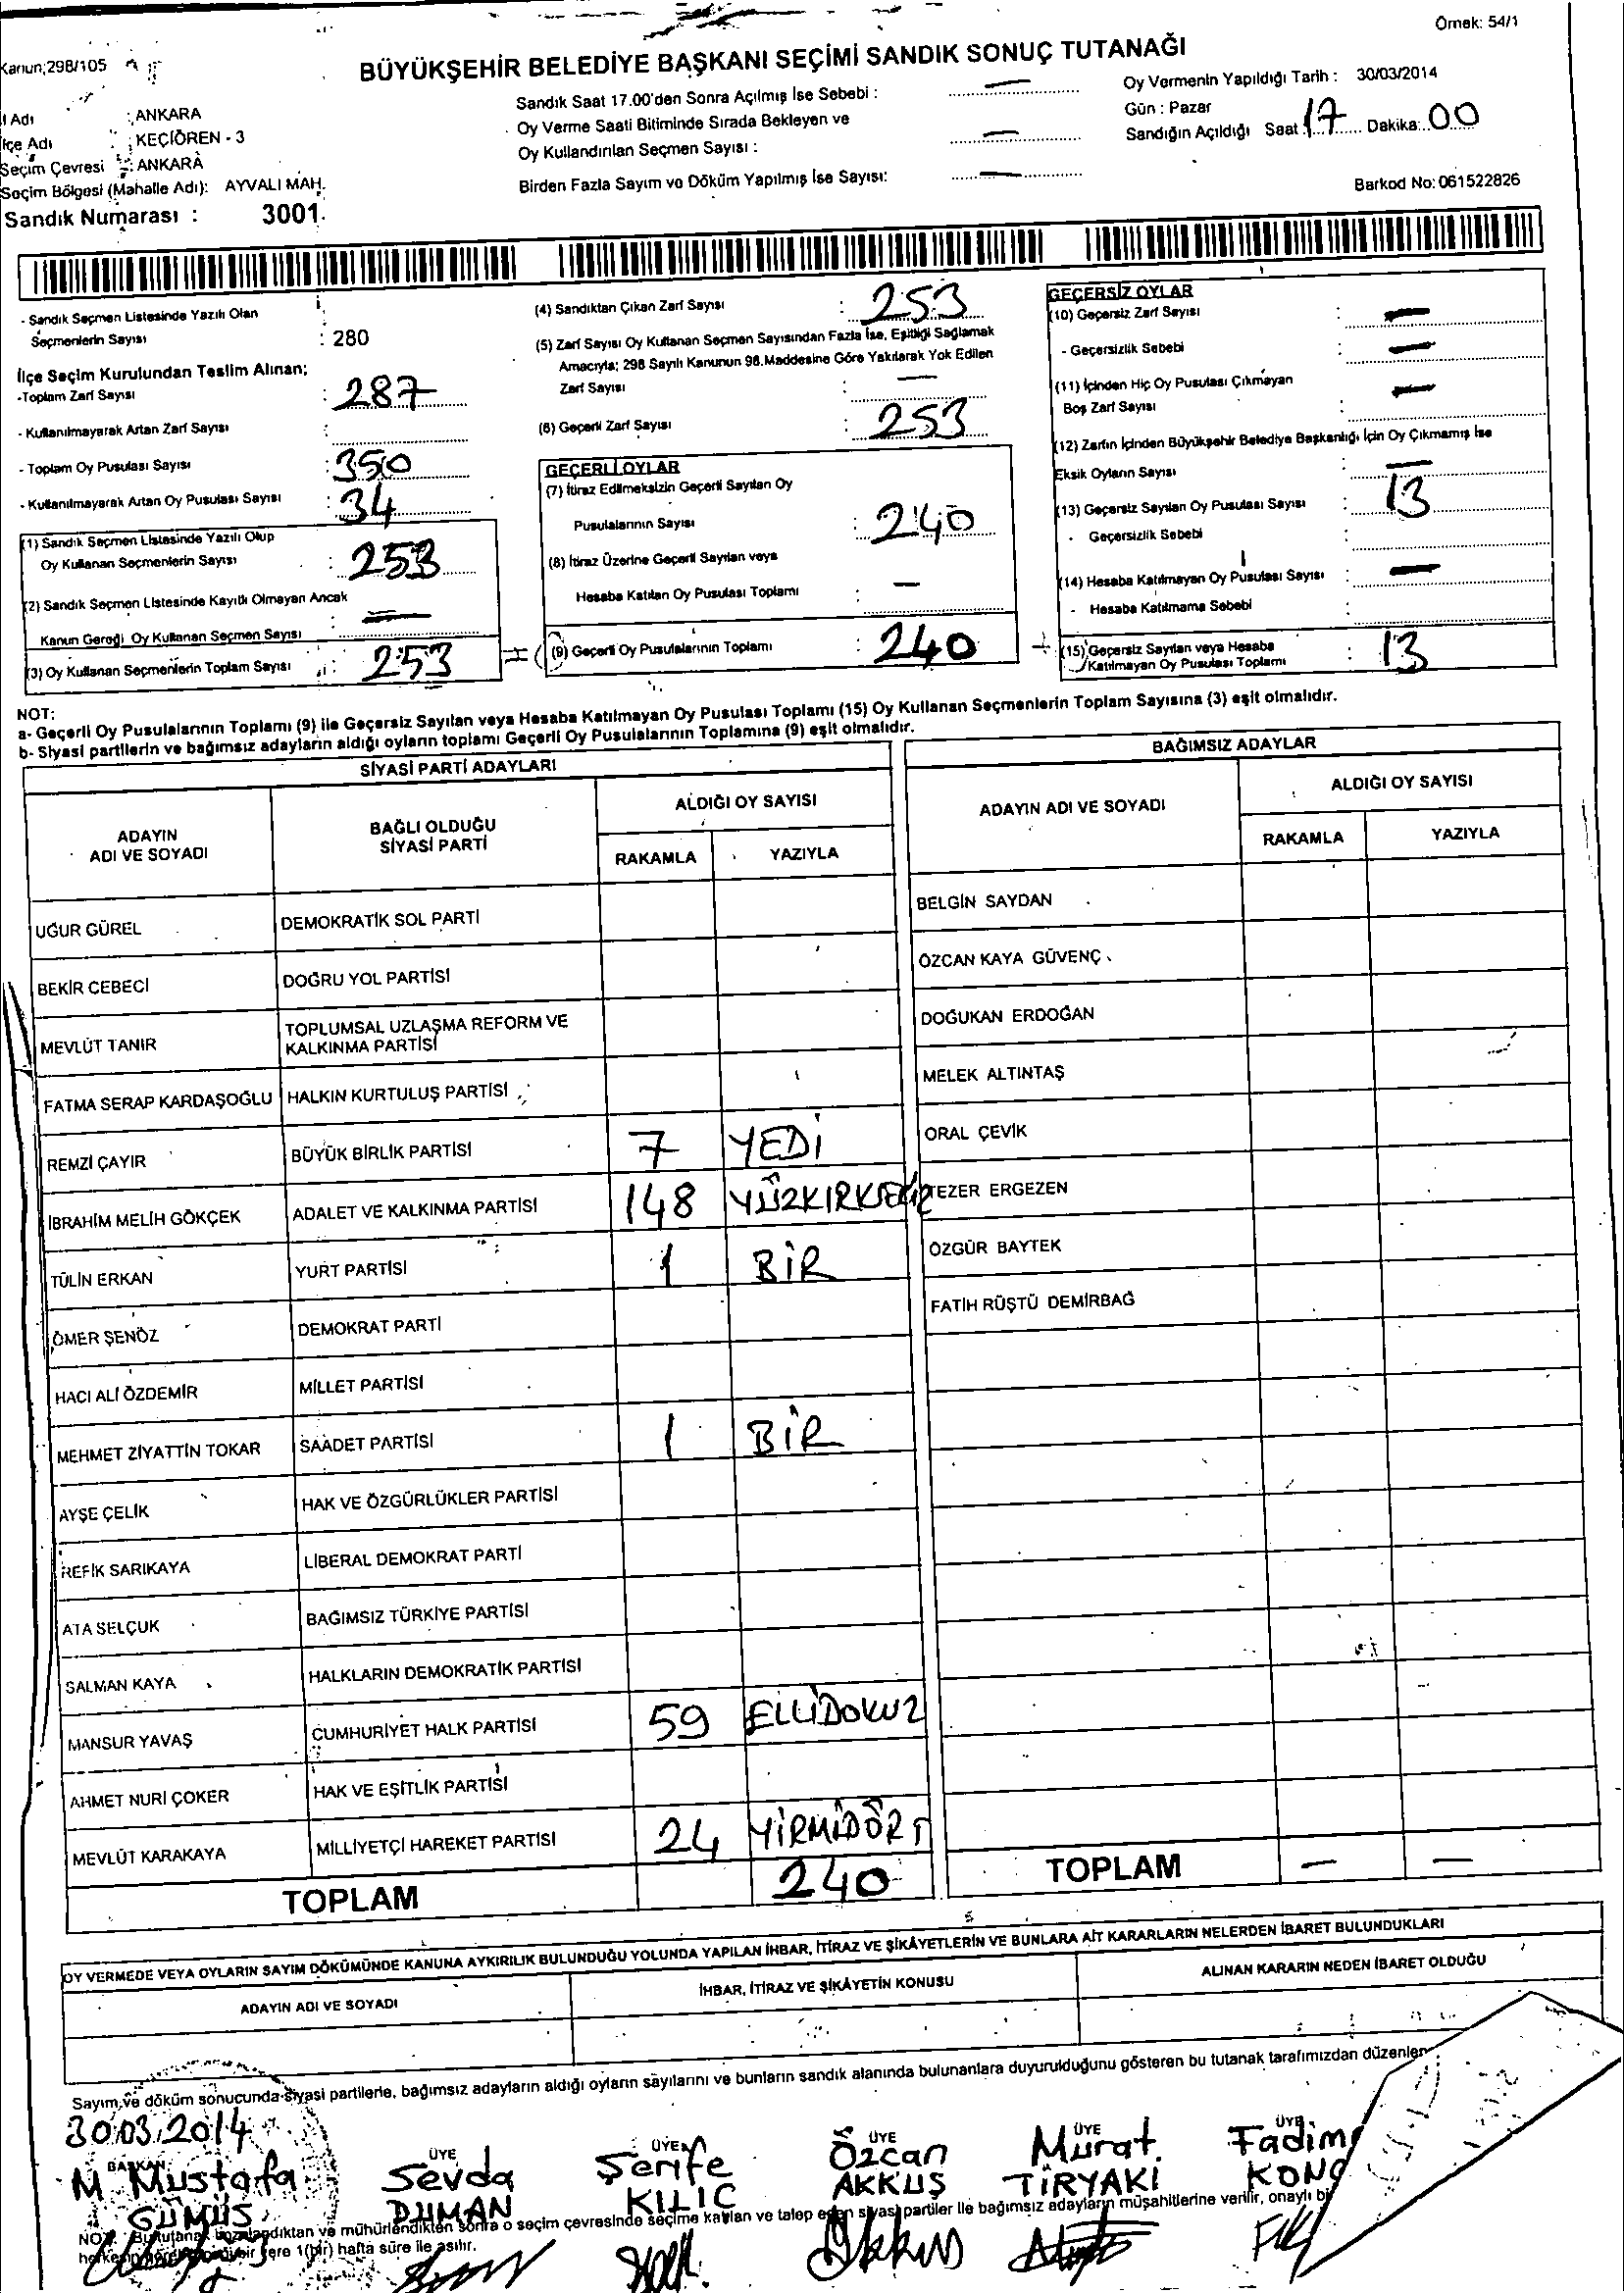 Örnek: 54/1
Kanun;298/105
BÜYÜKŞEHİR BELEDİYE BAŞKANI SEÇİMİ SANDIK SONUÇ TUTANAĞI
İl Adı : ANKARA
İlçe Adı : KEÇİÖREN - 3
Seçim Çevresi : ANKARA
Seçim Bölgesi (Mahalle Adı): AYVALI MAH.
Sandık Numarası : 3001
Sandık Saat 17.00'den Sonra Açılmış İse Sebebi : —
Oy Verme Saati Bitiminde Sırada Bekleyen ve
Oy Kullandırılan Seçmen Sayısı : —
Birden Fazla Sayım ve Döküm Yapılmış İse Sayısı: —
Oy Vermenin Yapıldığı Tarih : 30/03/2014
Gün : Pazar
Sandığın Açıldığı Saat : 17 Dakika: 00
Barkod No: 061522826
- Sandık Seçmen Listesinde Yazılı Olan
Seçmenlerin Sayısı : 280
İlçe Seçim Kurulundan Teslim Alınan;
-Toplam Zarf Sayısı : 287
- Kullanılmayarak Artan Zarf Sayısı :
- Toplam Oy Pusulası Sayısı : 350
- Kullanılmayarak Artan Oy Pusulası Sayısı : 34
(1) Sandık Seçmen Listesinde Yazılı Olup
Oy Kullanan Seçmenlerin Sayısı : 253
(2) Sandık Seçmen Listesinde Kayıtlı Olmayan Ancak
Kanun Gereği Oy Kullanan Seçmen Sayısı : —
(3) Oy Kullanan Seçmenlerin Toplam Sayısı : 253
(4) Sandıktan Çıkan Zarf Sayısı : 253
(5) Zarf Sayısı Oy Kullanan Seçmen Sayısından Fazla İse, Eşitliği Sağlamak
Amacıyla; 298 Sayılı Kanunun 98.Maddesine Göre Yakılarak Yok Edilen
Zarf Sayısı : —
(6) Geçerli Zarf Sayısı : 253
GEÇERLİ OYLAR
(7) İtiraz Edilmeksizin Geçerli Sayılan Oy
Pusulalarının Sayısı : 240
(8) İtiraz Üzerine Geçerli Sayılan veya
Hesaba Katılan Oy Pusulası Toplamı : —
= (9) Geçerli Oy Pusulalarının Toplamı : 240 +
GEÇERSİZ OYLAR
(10) Geçersiz Zarf Sayısı : —
- Geçersizlik Sebebi : —
(11) İçinden Hiç Oy Pusulası Çıkmayan
Boş Zarf Sayısı : —
(12) Zarfın İçinden Büyükşehir Belediye Başkanlığı İçin Oy Çıkmamış İse
Eksik Oyların Sayısı : —
(13) Geçersiz Sayılan Oy Pusulası Sayısı : 13
- Geçersizlik Sebebi :
(14) Hesaba Katılmayan Oy Pusulası Sayısı : —
- Hesaba Katılmama Sebebi :
(15) Geçersiz Sayılan veya Hesaba
Katılmayan Oy Pusulası Toplamı : 13
NOT:
a- Geçerli Oy Pusulalarının Toplamı (9) ile Geçersiz Sayılan veya Hesaba Katılmayan Oy Pusulası Toplamı (15) Oy Kullanan Seçmenlerin Toplam Sayısına (3) eşit olmalıdır.
b- Siyasi partilerin ve bağımsız adayların aldığı oyların toplamı Geçerli Oy Pusulalarının Toplamına (9) eşit olmalıdır.
SİYASİ PARTİ ADAYLARI
ADAYIN ADI VE SOYADI
BAĞLI OLDUĞU SİYASİ PARTİ
ALDIĞI OY SAYISI
RAKAMLA YAZIYLA
UĞUR GÜREL DEMOKRATİK SOL PARTİ
BEKİR CEBECİ DOĞRU YOL PARTİSİ
MEVLÜT TANIR TOPLUMSAL UZLAŞMA REFORM VE KALKINMA PARTİSİ
FATMA SERAP KARDAŞOĞLU HALKIN KURTULUŞ PARTİSİ
REMZİ ÇAYIR BÜYÜK BİRLİK PARTİSİ 7 YEDİ
İBRAHİM MELİH GÖKÇEK ADALET VE KALKINMA PARTİSİ 148 YÜZKIRKSEKİZ
TÜLİN ERKAN YURT PARTİSİ 1 BİR
ÖMER ŞENÖZ DEMOKRAT PARTİ
HACI ALİ ÖZDEMİR MİLLET PARTİSİ
MEHMET ZİYATTİN TOKAR SAADET PARTİSİ 1 BİR
AYŞE ÇELİK HAK VE ÖZGÜRLÜKLER PARTİSİ
REFİK SARIKAYA LİBERAL DEMOKRAT PARTİ
ATA SELÇUK BAĞIMSIZ TÜRKİYE PARTİSİ
SALMAN KAYA HALKLARIN DEMOKRATİK PARTİSİ
MANSUR YAVAŞ CUMHURİYET HALK PARTİSİ 59 ELLİDOKUZ
AHMET NURİ ÇOKER HAK VE EŞİTLİK PARTİSİ
MEVLÜT KARAKAYA MİLLİYETÇİ HAREKET PARTİSİ 24 YİRMİDÖRT
TOPLAM 240
BAĞIMSIZ ADAYLAR
ADAYIN ADI VE SOYADI
ALDIĞI OY SAYISI
RAKAMLA YAZIYLA
BELGİN SAYDAN
ÖZCAN KAYA GÜVENÇ
DOĞUKAN ERDOĞAN
MELEK ALTINTAŞ
ORAL ÇEVİK
TEZER ERGEZEN
ÖZGÜR BAYTEK
FATİH RÜŞTÜ DEMİRBAĞ
TOPLAM — —
OY VERMEDE VEYA OYLARIN SAYIM DÖKÜMÜNDE KANUNA AYKIRILIK BULUNDUĞU YOLUNDA YAPILAN İHBAR, İTİRAZ VE ŞİKÂYETLERİN VE BUNLARA AİT KARARLARIN NELERDEN İBARET BULUNDUKLARI
ADAYIN ADI VE SOYADI
İHBAR, İTİRAZ VE ŞİKÂYETİN KONUSU
ALINAN KARARIN NEDEN İBARET OLDUĞU
Sayım ve döküm sonucunda siyasi partilerle, bağımsız adayların aldığı oyların sayılarını ve bunların sandık alanında bulunanlara duyurulduğunu gösteren bu tutanak tarafımızdan düzenlen
30.03.2014
BAŞKAN ÜYE ÜYE ÜYE ÜYE ÜYE
M. Mustafa GÜMÜŞ
Sevda DUMAN
Şerife KILIÇ
Özcan AKKUŞ
Murat TİRYAKİ
Fadim KONÇ
NOT: Bu tutanak imzalandıktan ve mühürlendikten sonra o seçim çevresinde seçime katılan ve talep eden siyasi partiler ile bağımsız adayların müşahitlerine verilir, onaylı bi
yere 1(bir) hafta süre ile asılır.